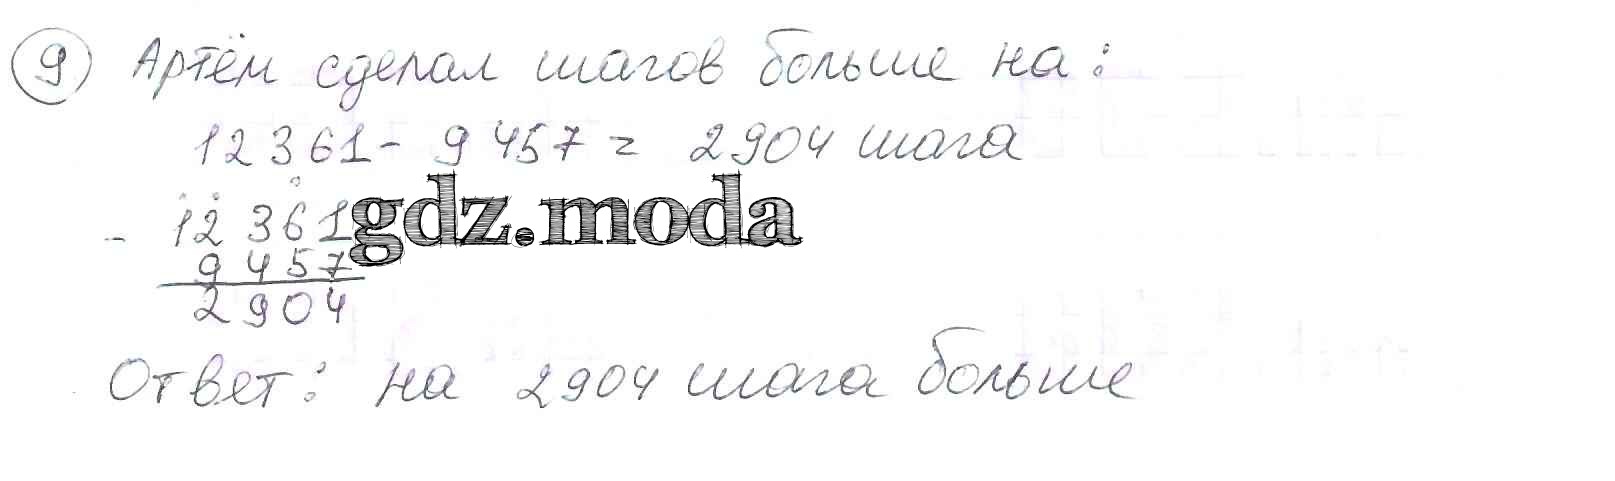 9 Артём сделал шагов больше на:
12361 - 9457 = 2904 шага
gdz.moda
- 12361
9457
2904
Ответ: на 2904 шага больше